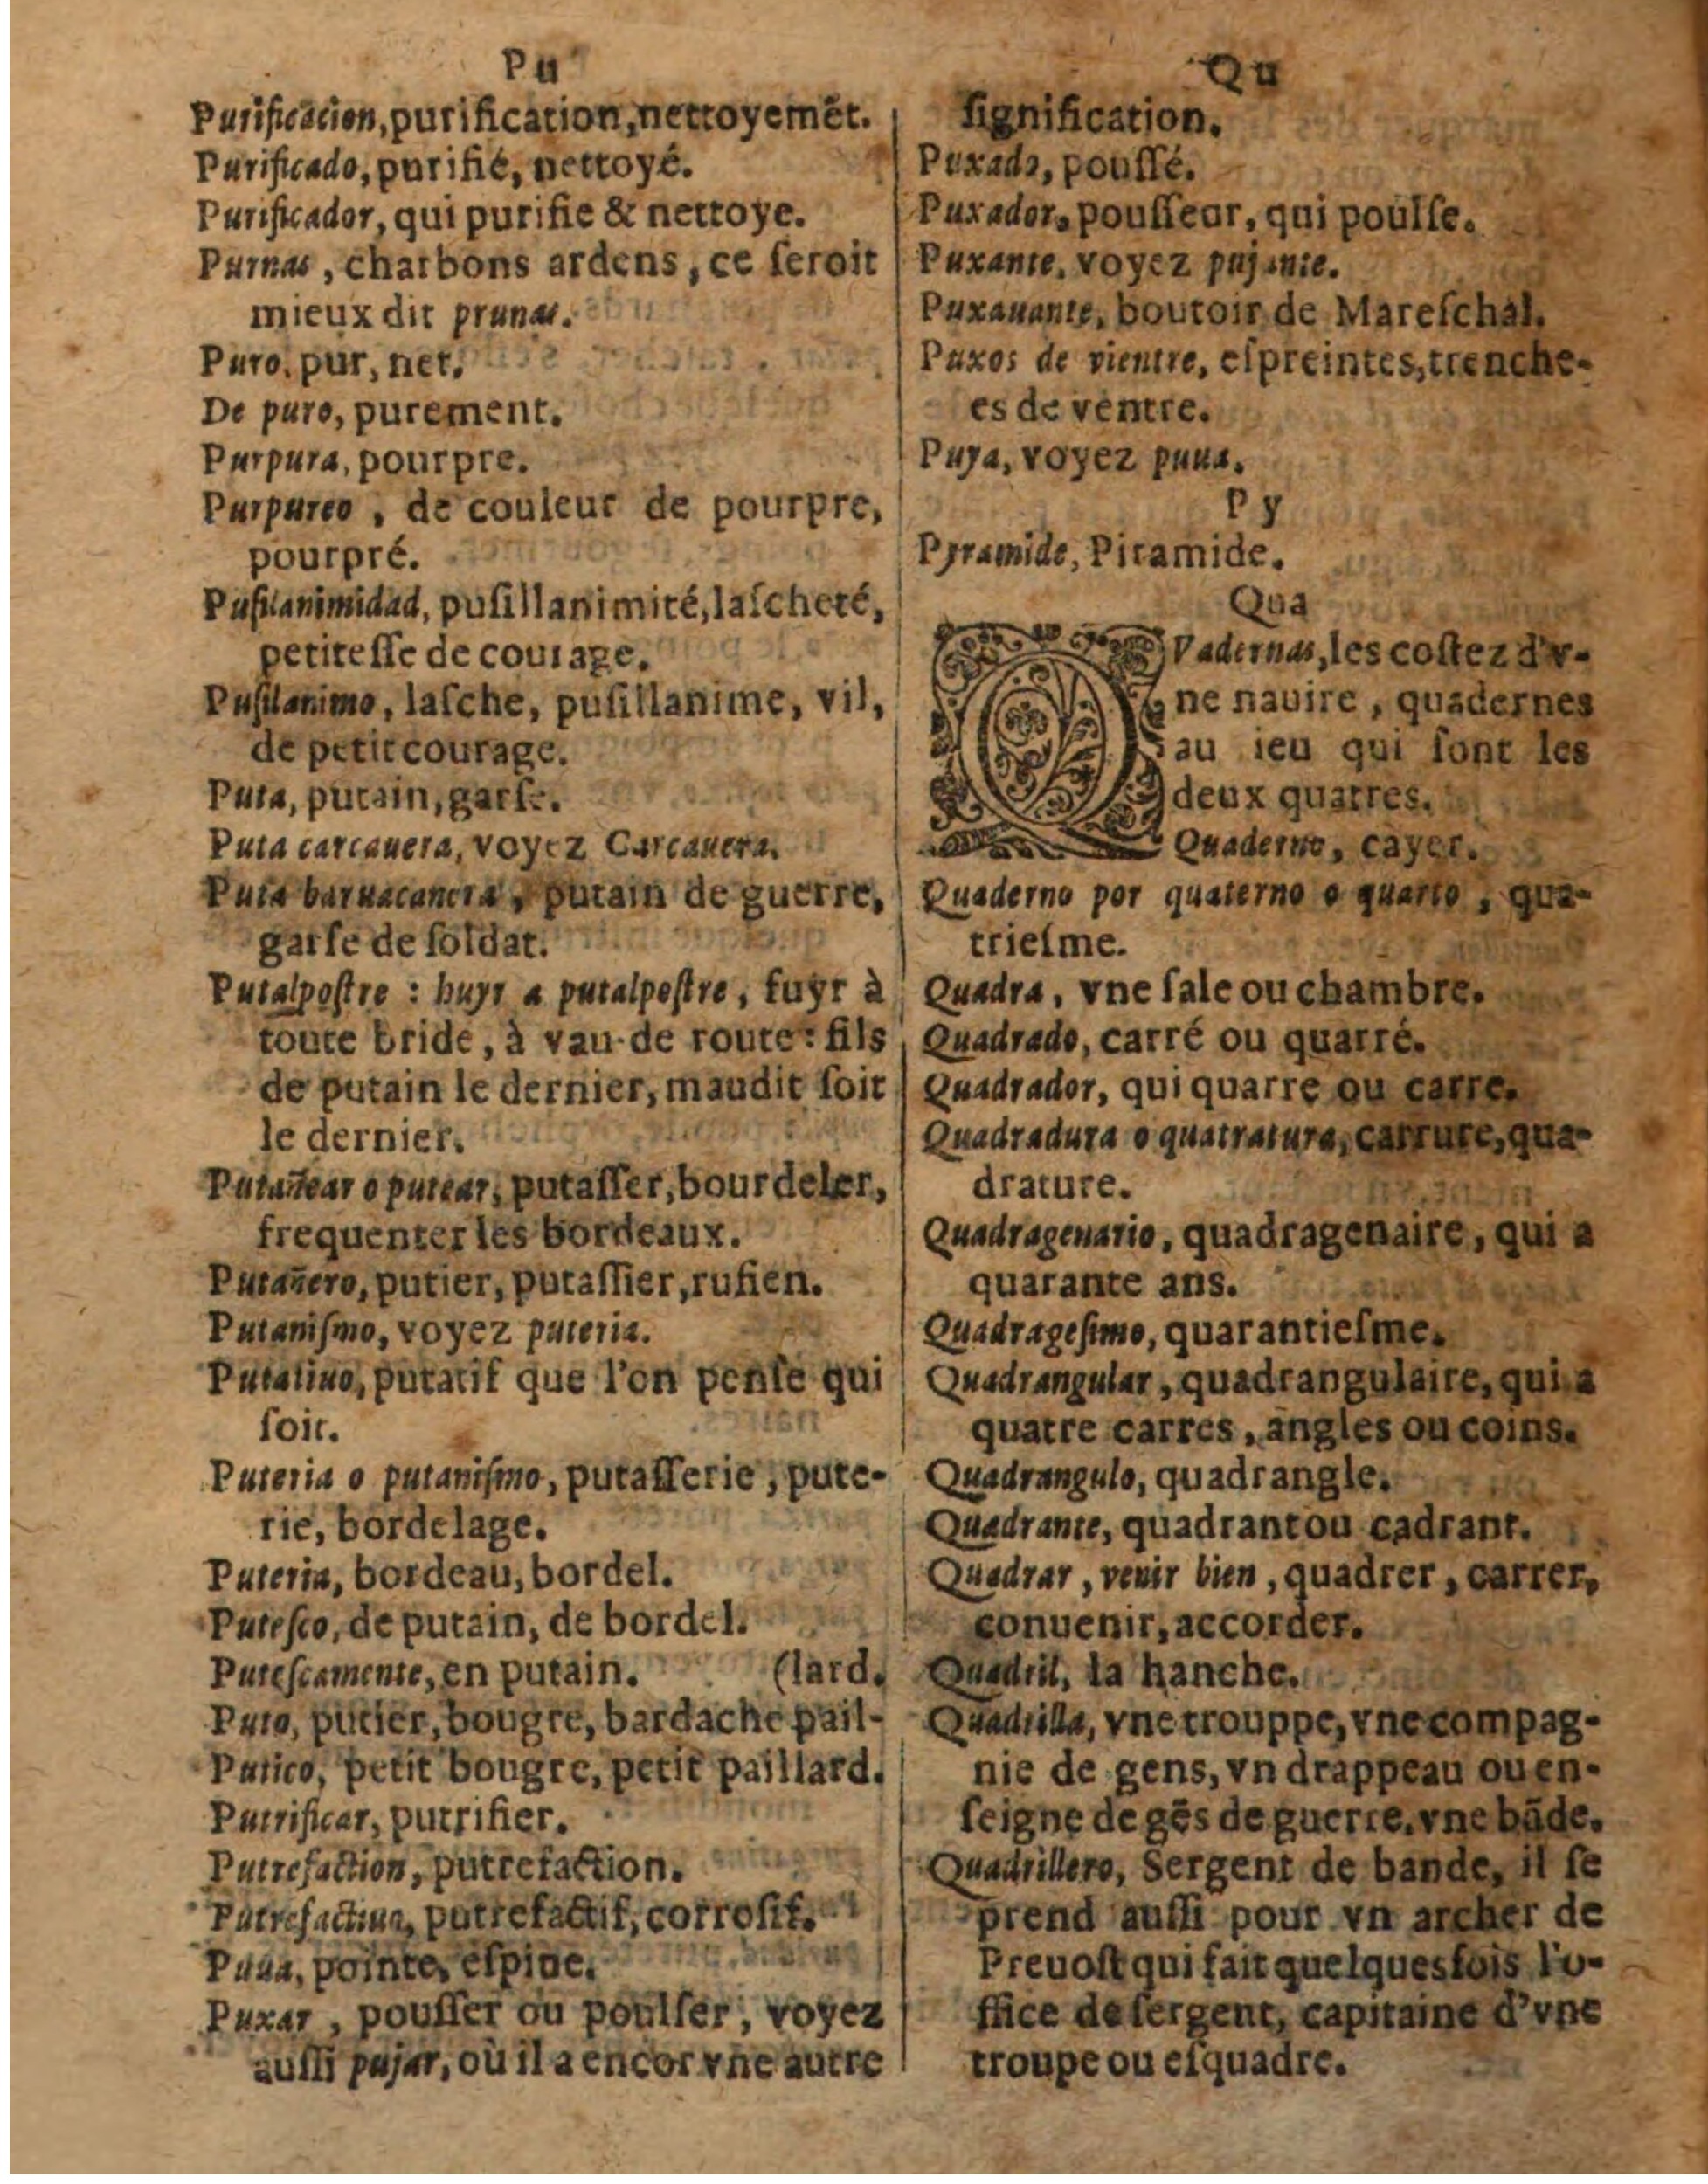 Pu
Purificacion, purification, nettoyemẽt.
Purificado, purifié, nettoyé.
Purificador, qui purifie & nettoye.
Purnas, charbons ardens, ce ſeroit
mieux dit prunas.
Puro, pur, net.
De puro, purement.
Purpura, pourpre.
Purpureo, de couleur de pourpre,
pourpré.
Puſilanimidad, puſillanimité, laſcheté,
petiteſſe de courage.
Puſilanimo, laſche, puſillanime, vil,
de petit courage.
Puta, putain, garſe.
Puta carcauera, voyez Carcauera.
Puta baruacanera, putain de guerre,
garſe de ſoldat.
Putalpoſtre : huyr a putalpoſtre, fuyr à
toute bride, à vau-de route : fils
de putain le dernier, maudit ſoit
le dernier.
Putañear o putear, putaſſer, bourdeler,
frequenter les bordeaux.
Putañero, putier, putaſſier, rufien.
Putaniſmo, voyez puteria.
Putatiuo, putatif que l'on penſe qui
ſoit.
Puteria o putaniſmo, putaſſerie, pute-
rie, bordelage.
Puteria, bordeau, bordel.
Puteſco, de putain, de bordel.
Puteſcamente, en putain. (lard.
Puto, putier, bougre, bardache pail-
Putico, petit bougre, petit paillard.
Putrificar, putrifier.
Putrefaction, putrefaction.
Putrefactiuo, putrefactif, corroſif.
Puua, pointe, eſpine.
Puxar, pouſſer ou poulſer, voyez
auſſi pujar, où il a encor vne autre
Qu
ſignification.
Puxado, pouſſé.
Puxador, pouſſeur, qui poulſe.
Puxante, voyez pujante.
Puxauante, boutoir de Mareſchal.
Puxos de vientre, eſpreintes, trenche-
es de ventre.
Puya, voyez puua.
Py
Pyramide, Piramide.
Qua
QVadernas, les coſtez d'v-
ne nauire, quadernes
au ieu qui ſont les
deux quatres.
Quaderno, cayer.
Quaderno por quaterno o quarto, qua-
trieſme.
Quadra, vne ſale ou chambre.
Quadrado, carré ou quarré.
Quadrador, qui quarre ou carre.
Quadradura o quatratura, carrure, qua-
drature.
Quadragenario, quadragenaire, qui a
quarante ans.
Quadrageſimo, quarantieſme.
Quadrangular, quadrangulaire, qui a
quatre carres, angles ou coins.
Quadrangulo, quadrangle.
Quadrante, quadrant ou cadrant.
Quadrar, venir bien, quadrer, carrer,
conuenir, accorder.
Quadril, la hanche.
Quadrilla, vne trouppe, vne compag-
nie de gens, vn drappeau ou en-
ſeigne de gẽs de guerre, vne bãde.
Quadrillero, Sergent de bande, il ſe
prend auſſi pour vn archer de
Preuoſt qui fait quelquesfois l'o-
ffice de ſergent, capitaine d'vne
troupe ou eſquadre.